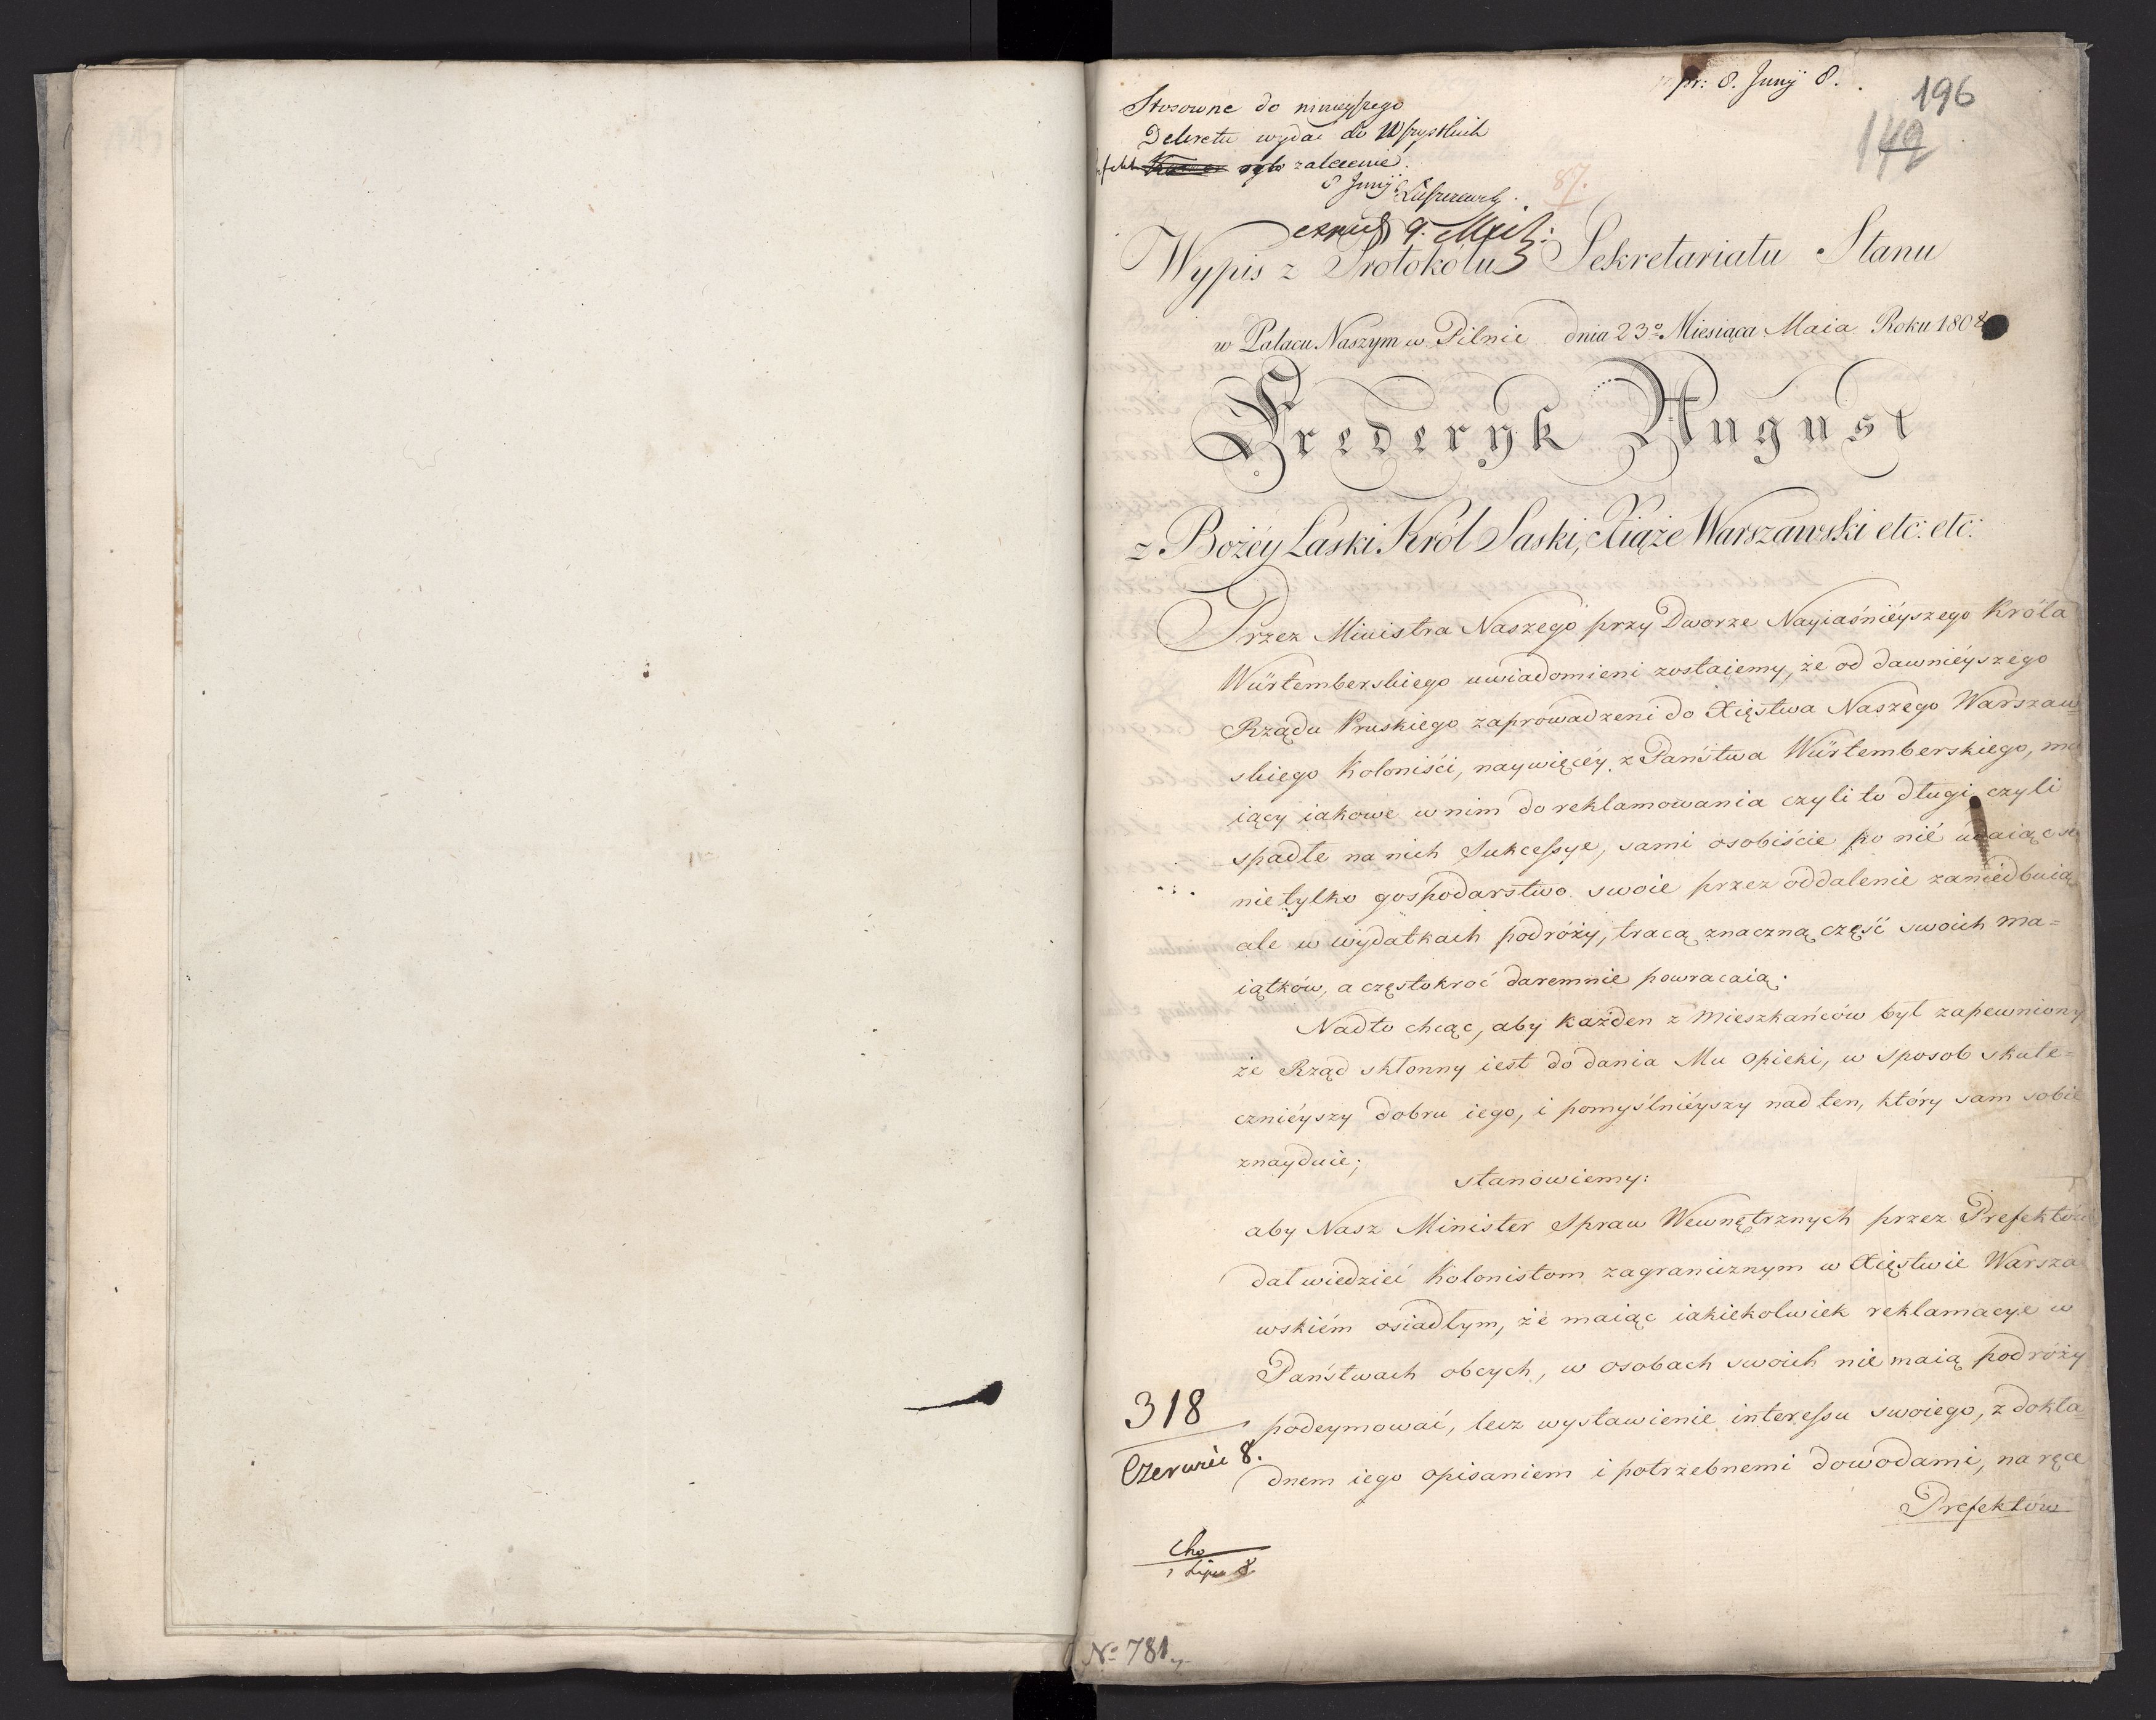 pr: 8. Junij 8.
196
149
Stosowne do ninieyszego
Dekretu wydać do Wszystkich
zalecenie.
8 Junij Łuszczewski.
87.
Wypis z Protokołu Sekretariatu Stanu
w Pałacu Naszym w Pilnic dnia 23º Miesiąca Maia Roku 1808
Frederyk August
z Bożéy Łaski Król Saski, Xiąże Warszawski etc: etc:
Przez Ministra Naszego przy Dworze Nayiaśniéyszego Króla
Würtemberskiego uwiadomieni zostaiemy, że od dawniéyszego
Rządu Pruskiego zaprowadzeni do Xięstwa Naszego Warszaw=
skiego Koloniści, naywięcéy z Państwa Würtemberskiego, ma
iący iakowe w nim do reklamowania czyli to długi czyli
spadłe na nich Sukcessye, sami osobiście po nié udaiąc się
nietylko gospodarstwo swoie przez oddalenie zaniedbuią
ale w wydatkach podróży, tracą znaczną część swoich ma=
iątków, a częstokroć daremnie powracaią.
Nadto chcąc, aby każden z Mieszkańców był zapewniony
że Rząd skłonny iest do dania Mu opieki, w sposob skute=
cznieyszy dobru iego, i pomyślniéyszy nad ten, który sam sobie
znayduie;
stanowiemy:
aby Nasz Minister Spraw Wewnętrznych przez Prefektów
dał wiedzieć Kolonistom zagranicznym w Xięstwie Warsza
wskiém osiadłym, że maiąc iakiekolwiek reklamacye w
Państwach obcych, w osobach swoich nie maią podróży
podeymować, lecz wystawienie interessu swoiego, z dokła=
dnem iego opisaniem i potrzebnemi dowodami, na ręce
Prefektów
318
Czerwiec 8.
Nº 781